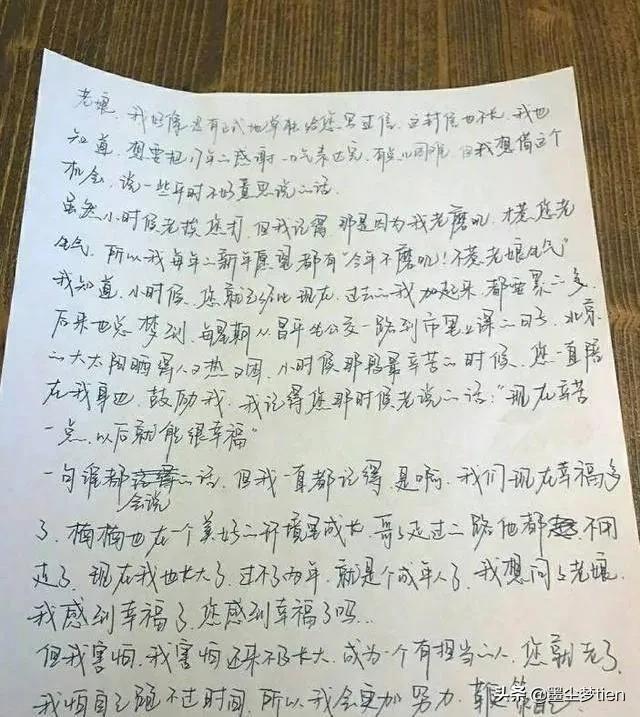 老娘，我好像还没有正式地单独给您写过信，这封信也不长，我也
知道，想要把17年的感谢一口气表达完，有点儿困难，但我想借这个
机会，说一些平时不好意思说的话。
虽然小时候老挨您打，但我记得那是因为我老磨叽，才惹您老
生气，所以我每年的新年愿望都有“今年不磨叽！不惹老娘生气”
我知道，小时候，您就已经比现在、过去的我加起来都要累的多，
后来也总梦到，每星期从昌平坐公交一路到市里上课的日子，北京
的大太阳晒得人又热又困，小时候那段最辛苦的时候，您一直陪
在我身边，鼓励我，我记得您那时候老说的话：“现在辛苦
一点，以后就能很幸福”
一句谁都会说的话，但我一直都记得，是啊，我们现在幸福多
了，楠楠也在一个美好的环境里成长，哥哥走过的路他都不用
走了，现在我也长大了，过不了两年，就是个成年人了，我想问问老娘，
我感到幸福了，您感到幸福了吗…
但我害怕，我害怕还来不及长大，成为一个有担当的人，您就老了，
我怕自己跑不过时间，所以我会更加努力，
头条@墨尘梦tien